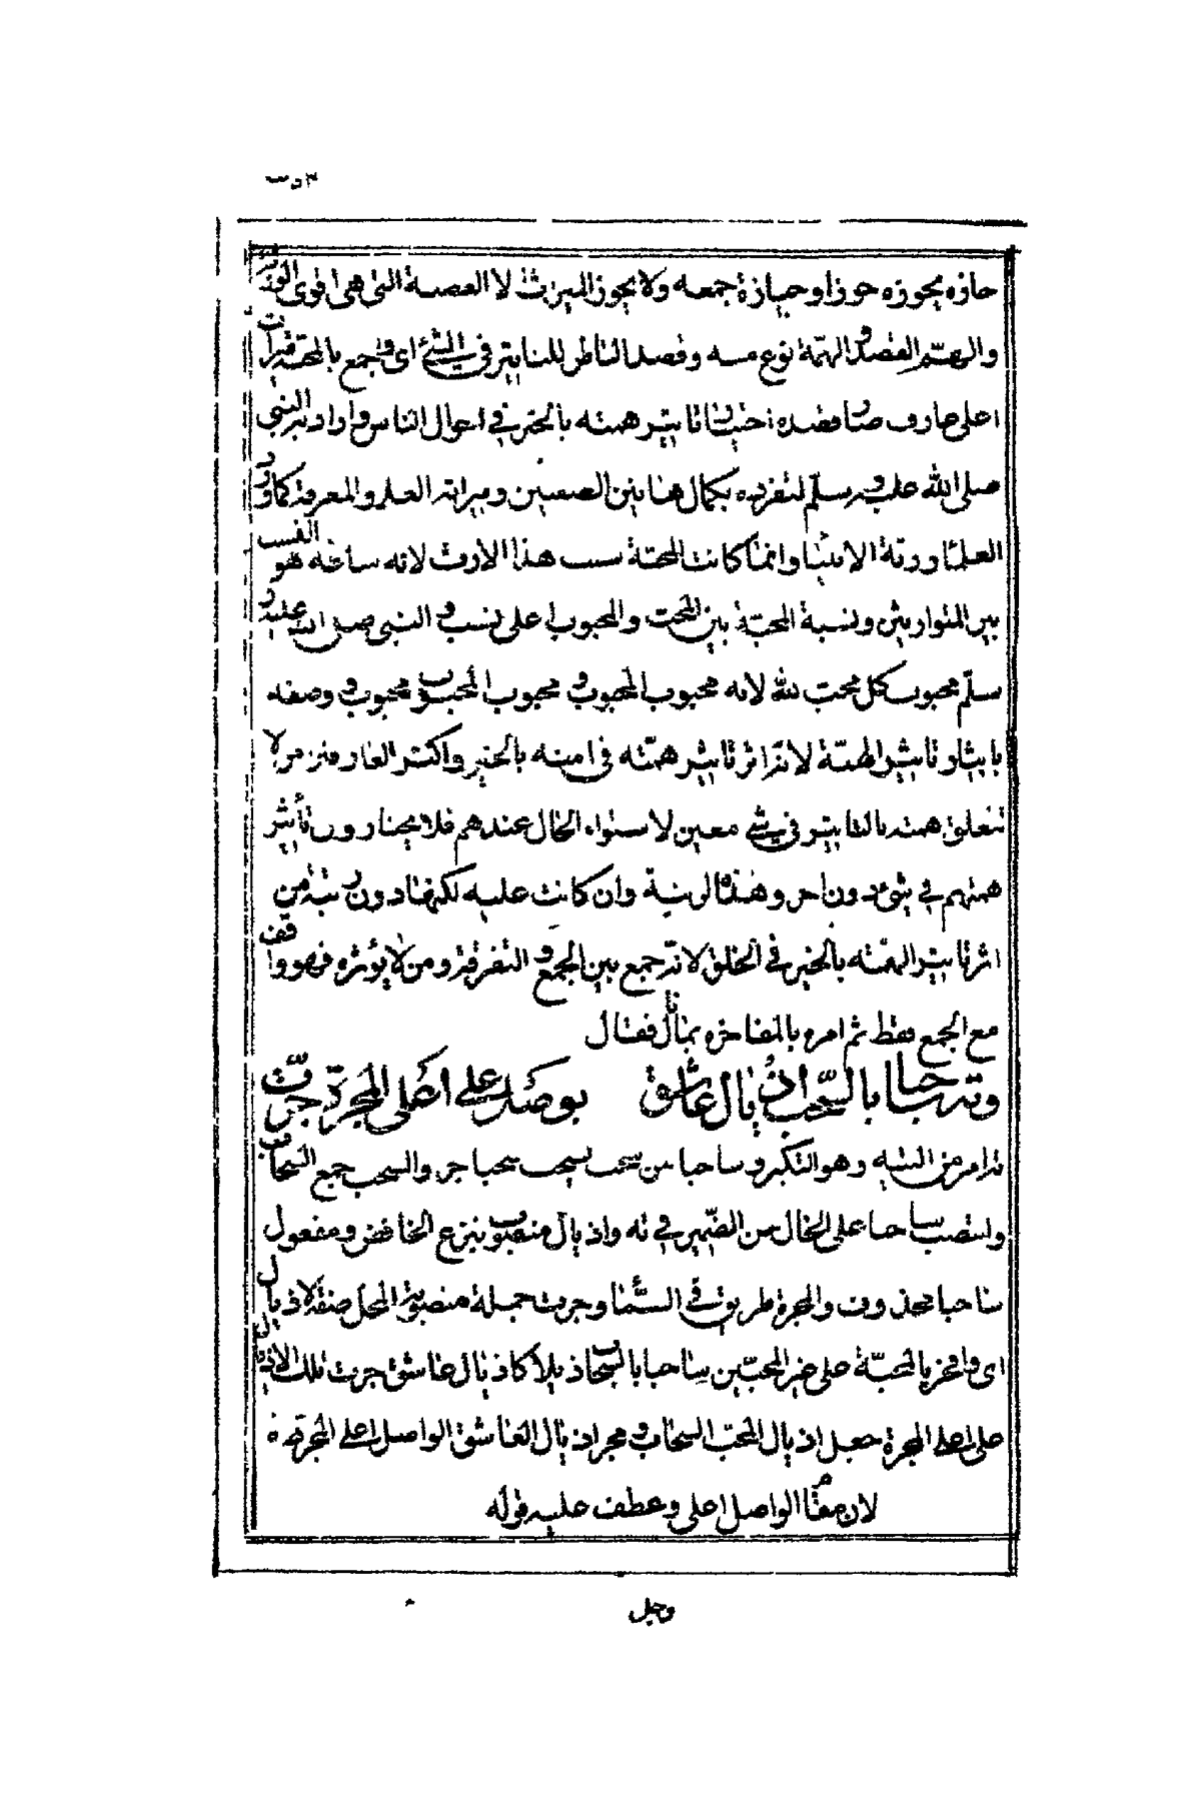 حازه يحوزه حوزا وحيازة جمعه ولا يحوز الميراث الا العصبة التى هى اقوى الورثة
والهمّ القصد والهمّة نوع منه وقصد الناظر للتاثير فى الشئ اى واجمع بالمحبة ميراث
اعلى عارف صار قصده تاثير همته بالخير فى احوال الناس واراد به النبى
صلى الله عليه وسلّم لتفرده بكمال هاتين الصفتين وميراثه العلم والمعرفة كما ورد
العلماء ورثة الانبياء وانما كانت المحبّة سبب هذا الارث لانه ساغه هو النسب
بين المتوارثين ونسبة المحبّة بين المحب والمحبوب اعلى نسب والنبى صلى الله عليه و
سلّم محبوب كل محب لله لانه محبوب المحبوب ومحبوب المحبوب محبوب وصفه
بايثار تاثير الهمّة لانه اثر تاثير همّته فى امته بالخير واكثر العارفين من لا
تتعلق همته بالتاثير فى شئ معين لاستواء الحال عندهم فلا يختارون تأثير
همتهم فى شئ دون اخر وهذه الرتبة وان كانت عليه لكنها دون رتبة من
اثر تاثير الهمّته بالخير فى الخلق لانه جمع بين الجمع والتفرقة ومن لا يؤثره فهو واقف
مع الجمع فقط ثم امره بالمفاخرة بما نال فقال
وته ساحبا بالسّحب اذيال عاشق بوصل على اعلى المجرّة جرّت
ته امر من التيه وهو التكبر وساحبا من سحب يسحب سحبا جر والسحب جمع السحاب
وانتصب ساحبا على الحال من الضمير فى ته واذيال منصوب بنزع الخافض ومفعول
ساحبا محذوف والمجرة طريق فى السماء وجرت جملة منصوبة المحل صفة لاذيال
اى وافخر بالمحبّة على غير المحبّين ساحبا بالسحاب اذيالا كاذيال عاشق جرت تلك الاذيال
على اعلى المجرة جعل اذيال المحبّ السحاب ومجر اذيال العاشق الواصل اعلى المجرة
لان مقام الواصل اعلى وعطف عليه قوله
وجل